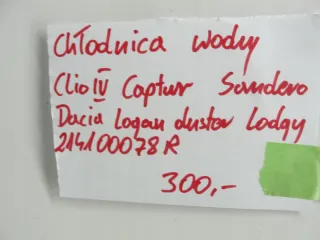 Chłodnica wody
Clio IV Captur Sandero
Dacia Logan duster Lodgy
214100078R
300,-